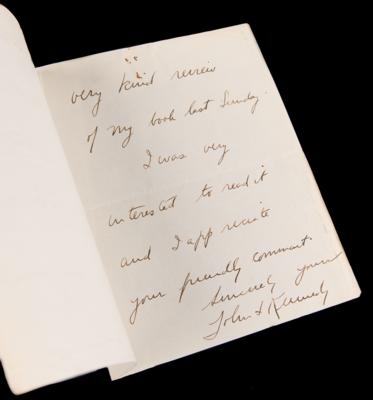 very kind review
of my book last Sunday.
I was very
interested to read it
and I appreciate
your friendly comments.
Sincerely yours
John F Kennedy